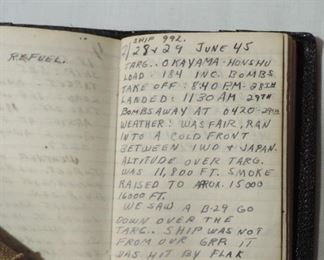 REFUEL.
SHIP 992.
28 & 29 JUNE 45
TARG.. OKAYAMA-HONSHU
LOAD: 184 INC. BOMBS
TAKE OFF: 8:40 P.M.-28TH
LANDED: 11:30 AM 29TH
BOMBS AWAY AT 0420-29TH
WEATHER: WAS FAIR, RAN
INTO A COLD FRONT
BETWEEN IWO & JAPAN.
ALTITUDE OVER TARG.
WAS 11,800 FT. SMOKE
RAISED TO APROX. 15000
16000 FT.
WE SAW A B-29 GO
DOWN OVER THE
TARG.. SHIP WAS NOT
FROM OUR GRP. IT
WAS HIT BY FLAK